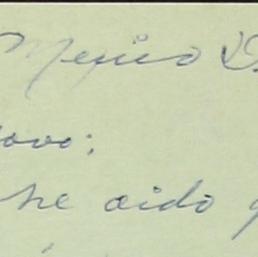 Mexico D.
ovo:
he oido